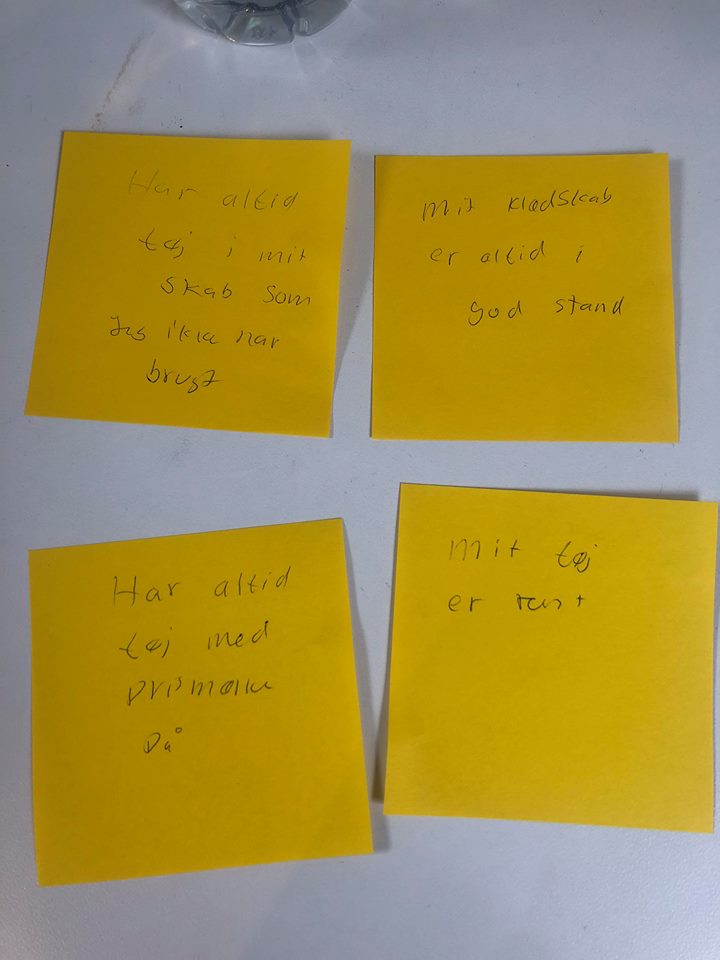 Har altid
tøj i mit
skab som
Jeg ikke har
brugt
Mit klædskab
er altid i
god stand
Har altid
tøj med
prismærke
på
Mit tøj
er